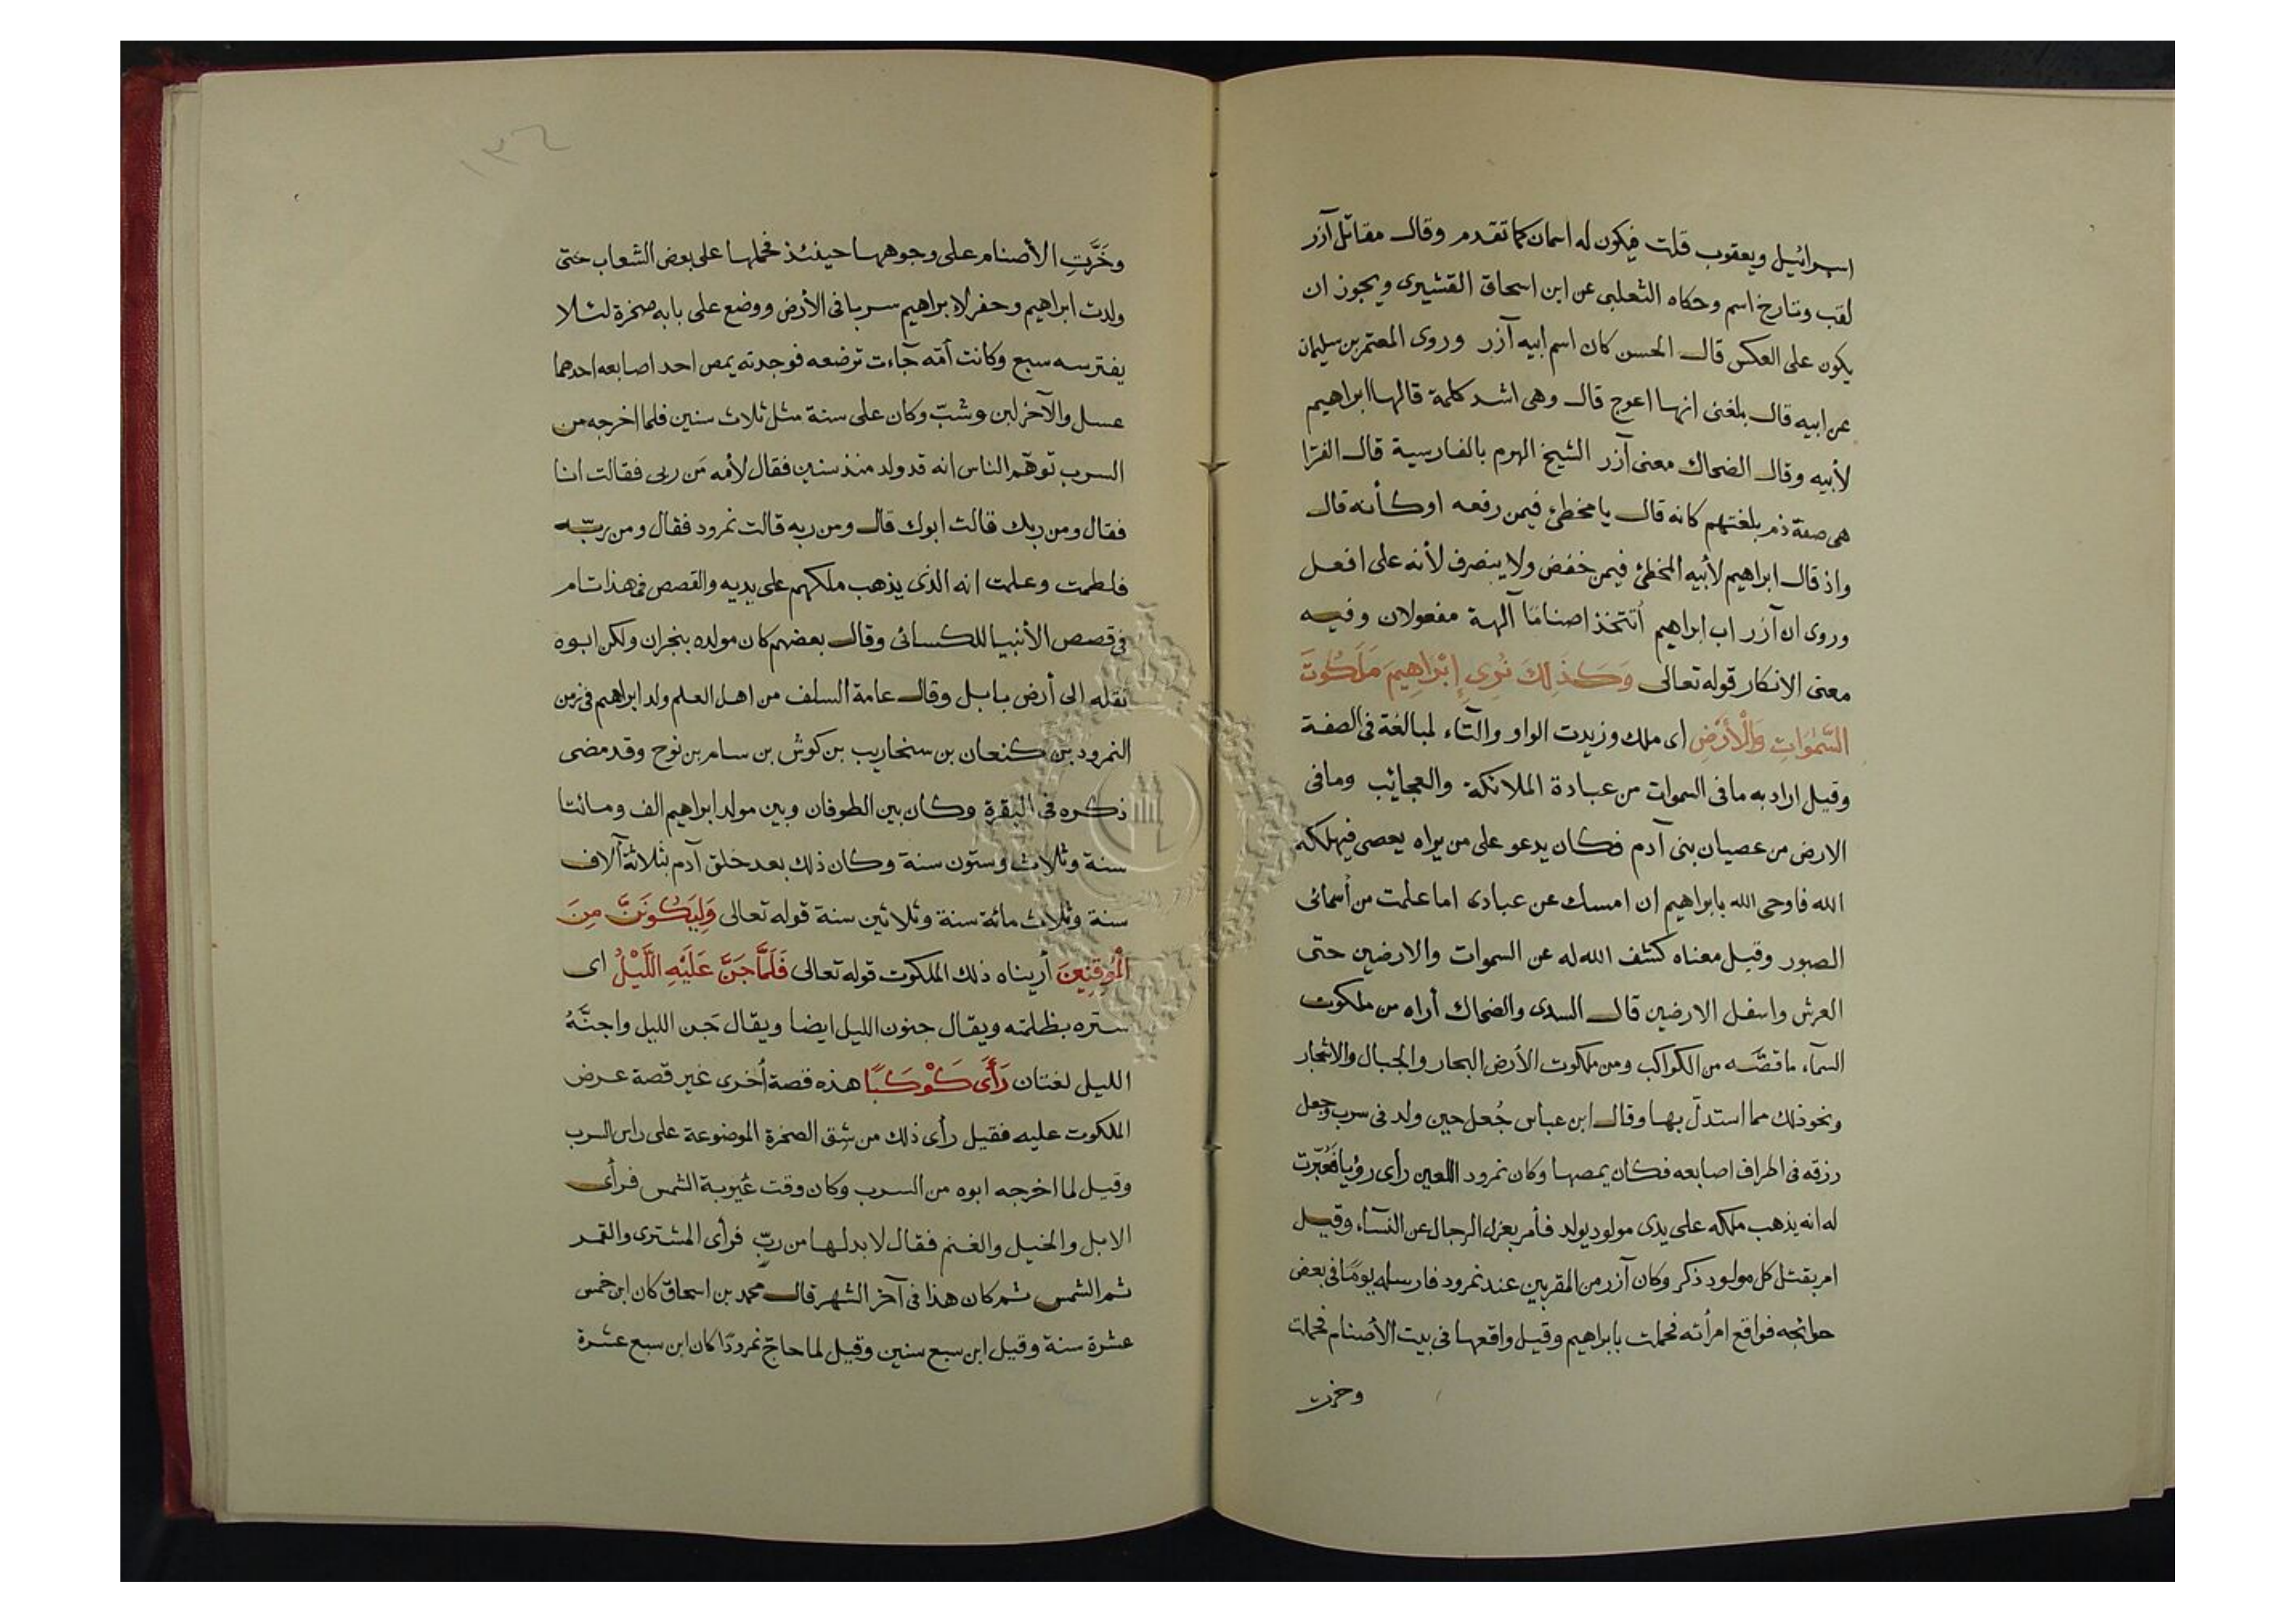 اسرائيل ويعقوب قلت فيكون له اسمان كما تقدم وقال مقاتل آزر
لقب وتارخ اسم وحكاه الثعلبى عن ابن اسحاق القشيرى ويجوز ان
يكون على العكس قال الحسن كان اسم ابيه آزر وروى المعتمر بن سليمان
عن ابيه قال بلغنى انها اعوج قال وهى اشد كلمة قالها ابراهيم
لأبيه وقال الضحاك معنى آزر الشيخ الهرم بالفارسية قال الفرّا
هى صفة ذم بلغتهم كانه قال يا مخطئ فيمن رفعه اوكأنه قال
واذ قال ابراهيم لأبيه المخطئ فيمن خفض ولا ينصرف لأنه على افعل
وروى ان آزر اب ابراهيم أتتخذ اصنامًا آلهة مفعولان وفيه
معنى الانكار قوله تعالى وَكَذَلِكَ نُرِى إِبْرَاهِيمَ مَلَكُوتَ
السَّمٰوَاتِ وَالْأَرْضِ اى ملك وزيدت الواو والتآء لمبالغة فى الصفة
وقيل اراد به ما فى السموات من عبادة الملائكة والعجائب وما فى
الارض من عصيان بنى آدم فكان يدعو على من يراه يعصى فيهلكه
الله فاوحى الله يا ابراهيم ان امسك عن عبادى اما علمت من أسمائى
الصبور وقيل معناه كشف الله له عن السموات والارضين حتى
العرش واسفل الارضين قال السدى والضحاك أراه من ملكوت
السمآء ما قصّه من الكواكب ومن ملكوت الأرض البحار والجبال والاشجار
ونحو ذلك مما استدلّ بها وقال ابن عباس جُعل حين ولد فى سرب وجعل
رزقه فى اطراف اصابعه فكان يمصها وكان نمرود اللعين رأى رؤيا فَعُبّرت
له انه يذهب ملكه على يدى مولود يولد فأمر بعزل الرجال عن النسآء وقيل
امر بقتل كل مولود ذكر وكان آزر من المقربين عند نمرود فارسله يومًا فى بعض
حوائجه فواقع امرأته فحملت بابراهيم وقيل واقعها فى بيت الأصنام فحملت
وخرت
١٣٤
وخَرَّتِ الأصنام على وجوهها حينئذ فحملها على بعض الشعاب حتى
ولدت ابراهيم وحفر لابراهيم سربا فى الأرض ووضع على بابه صخرة لئلا
يفترسه سبع وكانت أمّه جآءت ترضعه فوجدته يمص احد اصابعه احدهما
عسل والآخر لبن وشبّ وكان على سنة مثل ثلاث سنين فلما اخرجه من
السرب توهّم الناس انه قد ولد منذ سنين فقال لأمه مَن ربى فقالت انا
فقال ومن ربك قالت ابوك قال ومن ربه قالت نمرود فقال ومن ربّه
فلطمت وعلمت انه الذى يذهب ملكهم على يديه والقصص فى هذا تام
فى قصص الأنبيا للكسائى وقال بعضهم كان مولده بنجران ولكن ابوه
نقله الى أرض بابل وقال عامة السلف من اهل العلم ولد ابراهيم فى زمن
النمرود بن كنعان بن سنحاريب بن كوش بن سام بن نوح وقد مضى
ذكره فى البقرة وكان بين الطوفان وبين مولد ابراهيم الف ومائتا
سنة وثلاث وستون سنة وكان ذلك بعد خلق آدم بثلاثة آلاف
سنة وثلاث مائة سنة وثلاثين سنة قوله تعالى وَلِيَكُونَنَّ مِنَ
الْمُوقِنِينَ أريناه ذلك الملكوت قوله تعالى فَلَمَّا جَنَّ عَلَيْهِ اللَّيْلُ اى
ستره بظلمته ويقال جنون الليل ايضا ويقال جَن الليل واجنَّهُ
الليل لغتان رَأَى كَوْكَبًا هذه قصة أخرى غير قصة عرض
الملكوت عليه فقيل رأى ذلك من شِق الصخرة الموضوعة على راس السرب
وقيل لما اخرجه ابوه من السرب وكان وقت غيوبة الشمس فرأى
الابل والخيل والغنم فقال لا بد لها من ربّ فرأى المشترى والقمر
ثم الشمس ثم كان هذا فى آخر الشهر قال محمد بن اسحاق كان ابن خمس
عشرة سنة وقيل ابن سبع سنين وقيل لما حاجّ نمرودًا كان ابن سبع عشرة